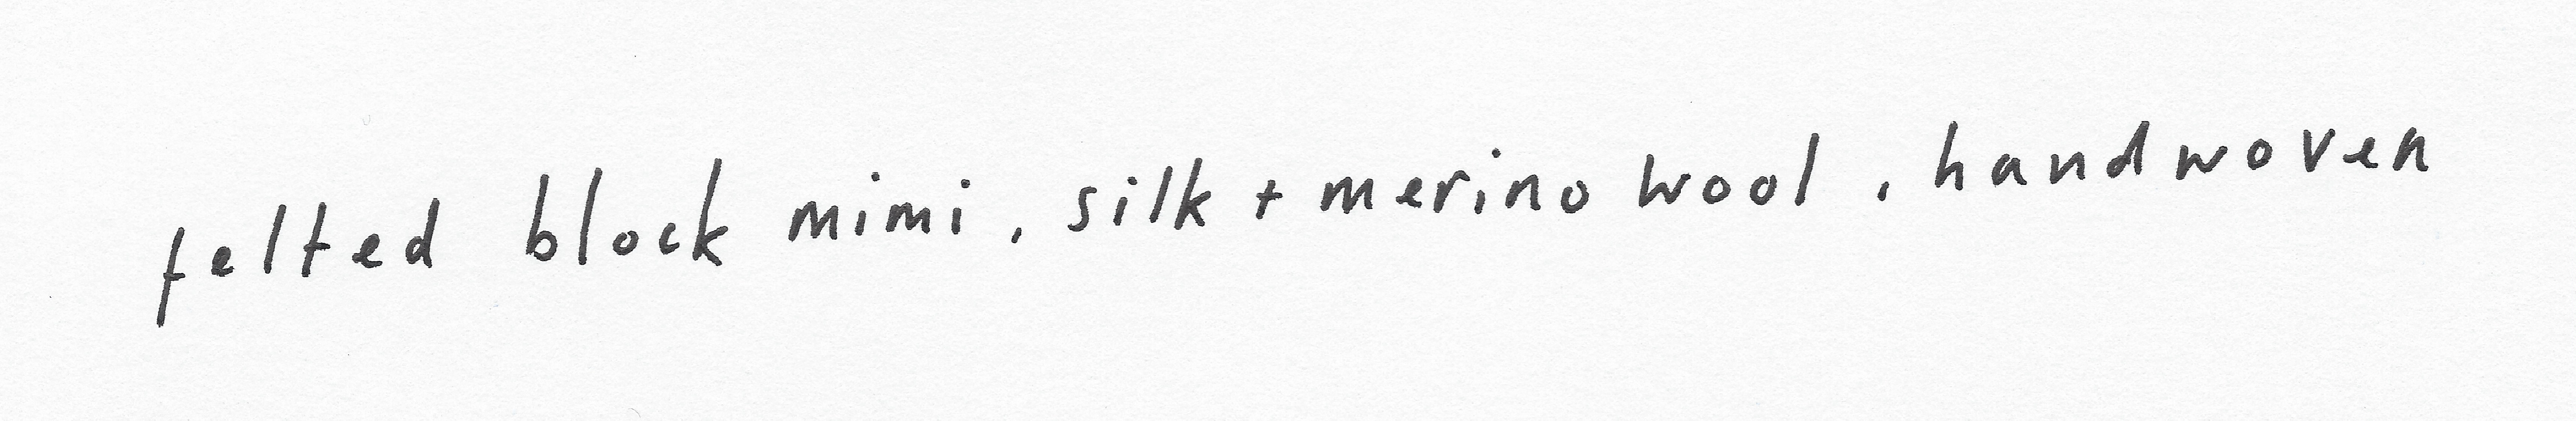 felted block mimi, silk + merino wool, handwoven